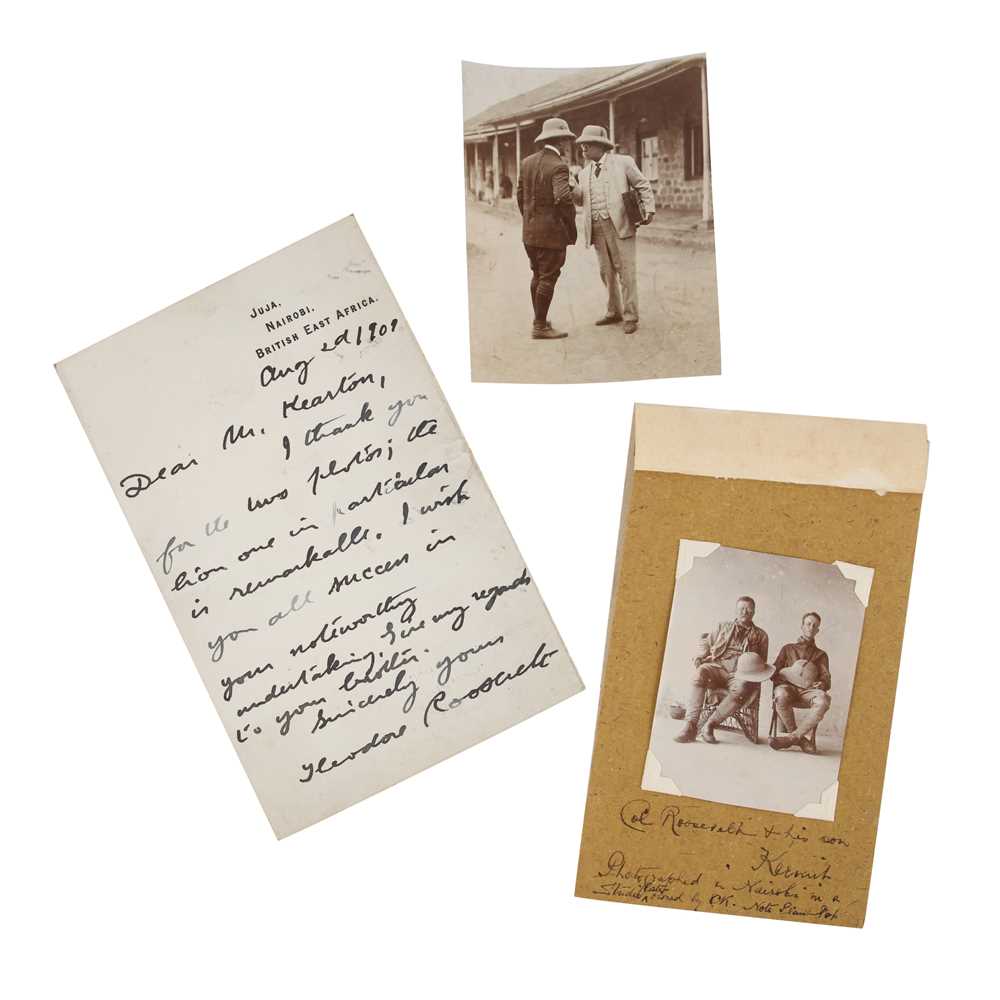 JUJA,
NAIROBI,
BRITISH EAST AFRICA.
Aug 2d 1909
Dear Mr. Kearton,
I thank you
for the two photos; the
lion one in particular
is remarkable. I wish
you all success in
your noteworthy
undertaking. Give my regards
to your brother.
Sincerely yours
Theodore Roosevelt
Col Roosevelt & his son
Kermit
Photographed in Nairobi in a
Studio later owned by CK. Note Slam